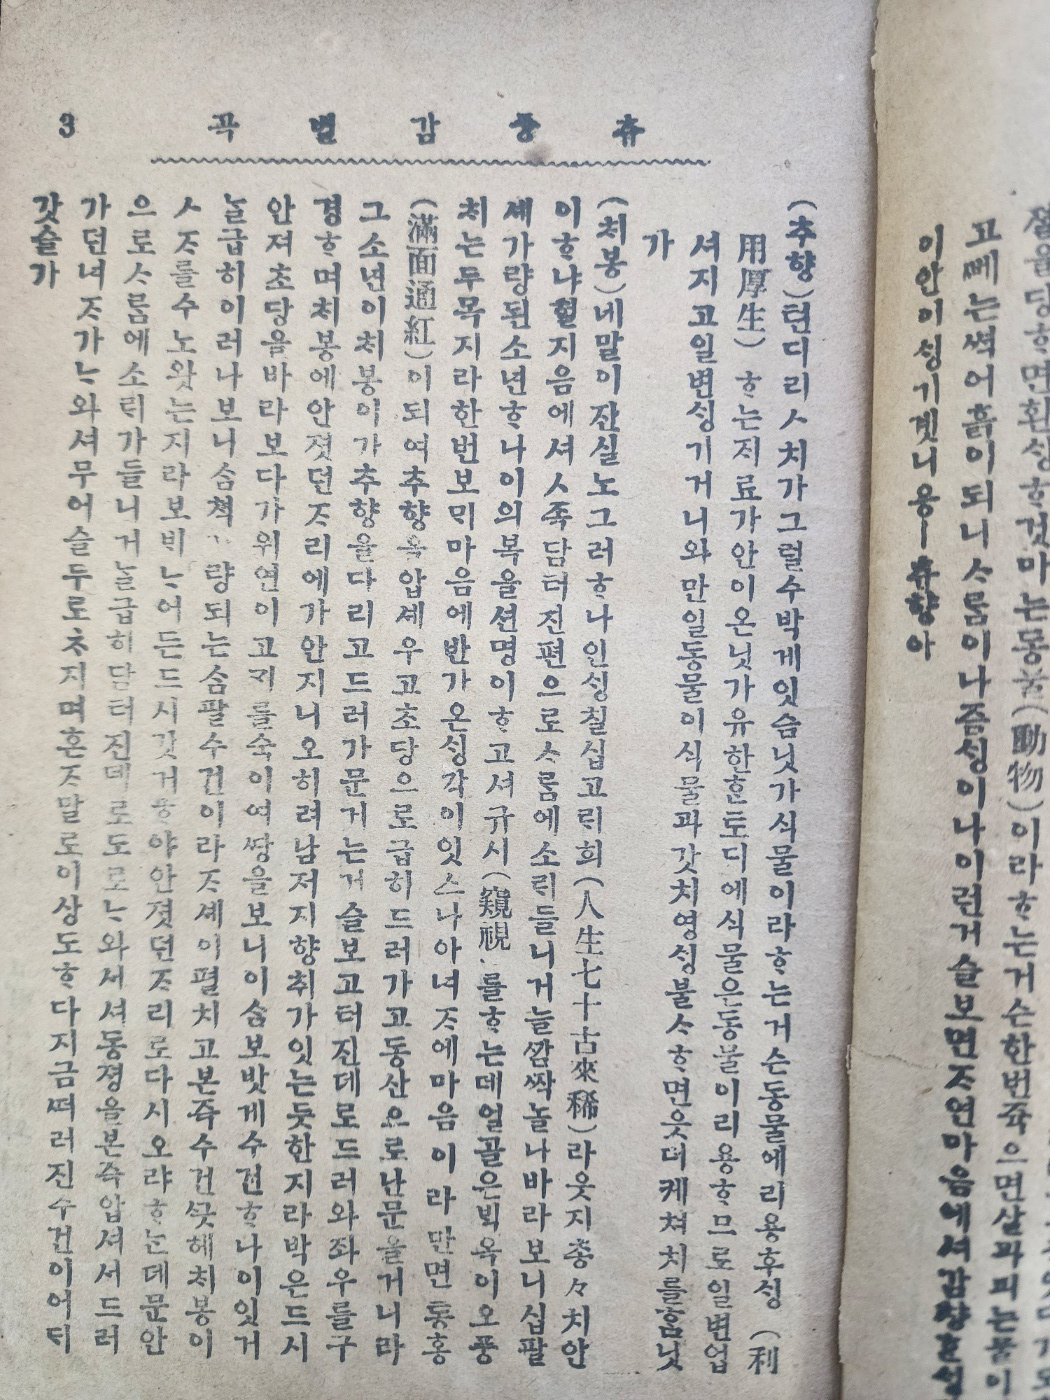 졀을당ᄒᆞ면환ᄉᆡᆼᄒᆞ것마는동물(動物)이라ᄒᆞ는거슨한번쥭으면살과피는물이
고ᄲᅧ는썩어흙이되니ᄉᆞ름이나즘ᄉᆡᆼ이나이런거슬보면ᄌᆞ연마음에셔감챵
이안이ᄉᆡᆼ기겟니응ㅡ츄향아
츄풍감별곡 3
(추향)텬디리ᄉᆞ치가그럴수박게잇슴닛가식물이라ᄒᆞ는거슨동물에리용후ᄉᆡᆼ(利
用厚生)ᄒᆞ는저료가안이온닛가유한ᄒᆞᆫ토디에식물은동물이리용ᄒᆞ므로일변업
셔지고일변ᄉᆡᆼ기거니와만일동물이식물과갓치영ᄉᆡᆼ불ᄉᆞᄒᆞ면웃더케쳐치를ᄒᆞᆷ닛
가
(처봉)네말이잔실노그러ᄒᆞ나인ᄉᆡᆼ칠십고ᄅᆡ희(人生七十古來稀)라웃지총々치안
이ᄒᆞ냐헐지음에셔ᄉᆞ족담터진편으로ᄉᆞ름에소ᄅᆡ들니거늘ᄭᅡᆷᄶᅡᆨ놀나바라보니십팔
셰가량된소년ᄒᆞ나이의복을션명이ᄒᆞ고셔규시(窺視)를ᄒᆞ는데얼골은ᄇᆡᆨ옥이오풍
처는두목지라한번보ᄆᆡ마음에반가온ᄉᆡᆼ각이잇스나아녀ᄌᆞ에마음이라만면통홍
(滿面通紅)이되여추향을압셰우고초당으로급히드러가고동산으로난문을거니라
그소년이처봉이가추향을다리고드러가문거는거슬보고터진데로드러와좌우를구
경ᄒᆞ며처봉에안졋던ᄌᆞ리에가안지니오히려남저지향취가잇는듯한지라박은드시
안져초당을바라보다가위연이고ᄀᆡ를숙이여ᄯᅡᆼ을보니이솜보밧게수건ᄒᆞ나이잇거
늘급히이러나보니솜쳑가량되는솜팔수건이라ᄌᆞ셰이펼치고본즉수건ᄭᅳᆺ헤처봉이
ᄉᆞᄌᆞ를수노왓는지라보ᄇᆡᄂᆞ어든드시깃거ᄒᆞ야안졋던ᄌᆞ리로다시오랴ᄒᆞ는데문안
으로ᄉᆞ름에소ᄅᆡ가들니거늘급히담터진데로도로ᄂᆞ와셔셔동졍을본즉압셔셔드러
가던녀ᄌᆞ가ᄂᆞ와셔무어슬두로ᄎᆞ지며혼ᄌᆞ말로이상도ᄒᆞ다지금ᄯᅥ러진수건이어듸
갓슬가